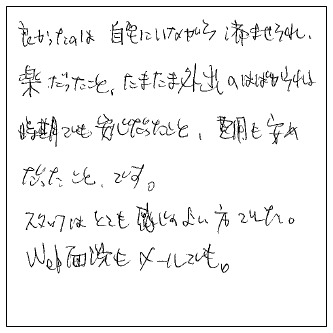 良かったのは 自宅にいながら 済ませられ、
楽だったこと、たまたま外出のはばかられる
時期でも安心だったこと、費用も安め
だったこと、です。
スタッフはとても感じのよい方でした。
Web面談もメールでも。